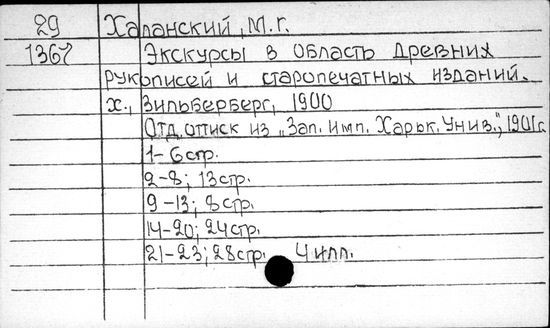 29 Халанский, М.г.
1367 Экскурсы в область древних
рукописей и старопечатных изданий.
х., Зильберберг, 1900
Отд. отписк из "Зап. имп. Харьк. Унив.", 1901г.
1-6стр.
2-8; 13стр.
9-13; 8стр.
14-20; 24стр.
21-23; 28стр. 4 илл.